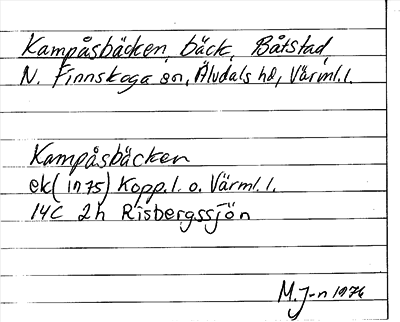 Kampåsbäcken, bäck, Båtstad,
N. Finnskoga sn, Älvdals hd, Värml. l.
Kampåsbäcken
ek (1975) Kopp. l. o. Värml. l.
14C 2h Risbergssjön
M. J-n 1976